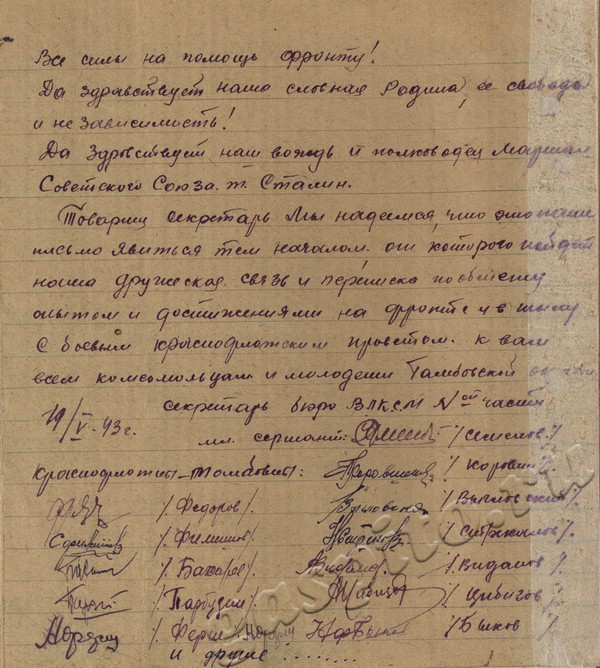 Все силы на помощь фронту!
Да здравствует наша славная Родина, ее свобода
и независимость!
Да здравствует наш вождь и полководец Маршал
Советского Союза т. Сталин.
Товарищ секретарь Мы надеемся, что это наше
письмо явиться тем началом от которого пойдет
наша дружеская связь и переписка по обмену
опытом и достижениями на фронте и в тылу
С боевым краснофлотским приветом к вам
всем комсомольцам и молодежи Тамбовской
секретарь бюро ВЛКСМ N ой части
19/V-43г.
мл. сержант: /Семенов/
Краснофлотцы-тамбовцы:
/Федоров/.
/Филиппов/.
/Бахарев/.
/Виданов/.
/Цибизов/.
/Быков/.
и другие .......